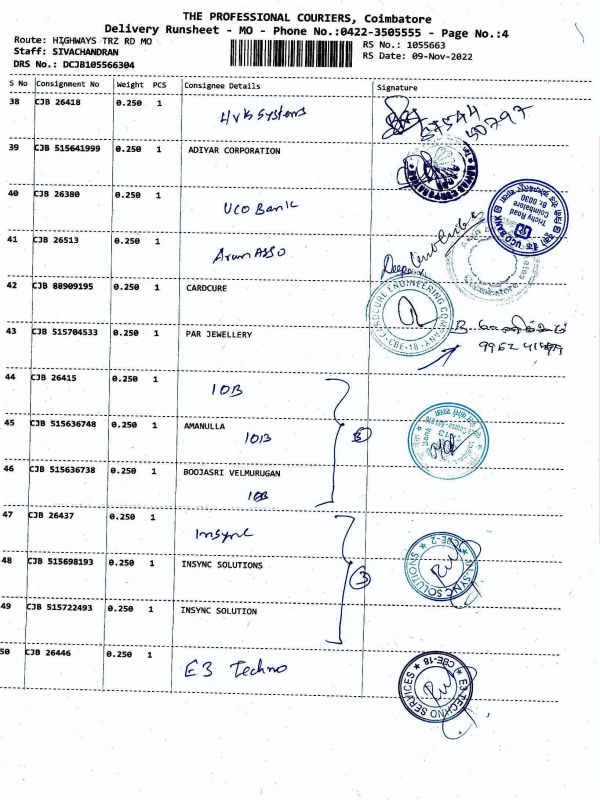 THE PROFESSIONAL COURIERS, Coimbatore
Delivery Runsheet - MO - Phone No.:0422-3505555 - Page No.:4
Route: HIGHWAYS TRZ RD MO
RS No.: 1055663
Staff: SIVACHANDRAN
RS Date: 09-Nov-2022
DRS No.: DCJB105566304
S No Consignment No Weight PCS Consignee Details Signature
38 CJB 26418 0.250 1
HVB Systems
39 CJB 515641999 0.250 1 ADIYAR CORPORATION
40 CJB 26380 0.250 1
UCO Bank
UCO BANK
Trichy Road
Coimbatore
Br. 0030
41 CJB 26513 0.250 1
Arun ASSO
42 CJB 88909195 0.250 1 CARDCURE
CARDCURE ENGINEERING COMPANY
CBE-18
43 CJB 515704533 0.250 1 PAR JEWELLERY
44 CJB 26415 0.250 1
IOB
45 CJB 515636748 0.250 1 AMANULLA
IOB
46 CJB 515636738 0.250 1 BOOJASRI VELMURUGAN
IOB
47 CJB 26437 0.250 1
Insync
48 CJB 515698193 0.250 1 INSYNC SOLUTIONS
3
IN-SYNC SOLUTIONS
CBE-2
49 CJB 515722493 0.250 1 INSYNC SOLUTION
50 CJB 26446 0.250 1
E3 Techno
E3 TECHNO SERVICES
CBE-18